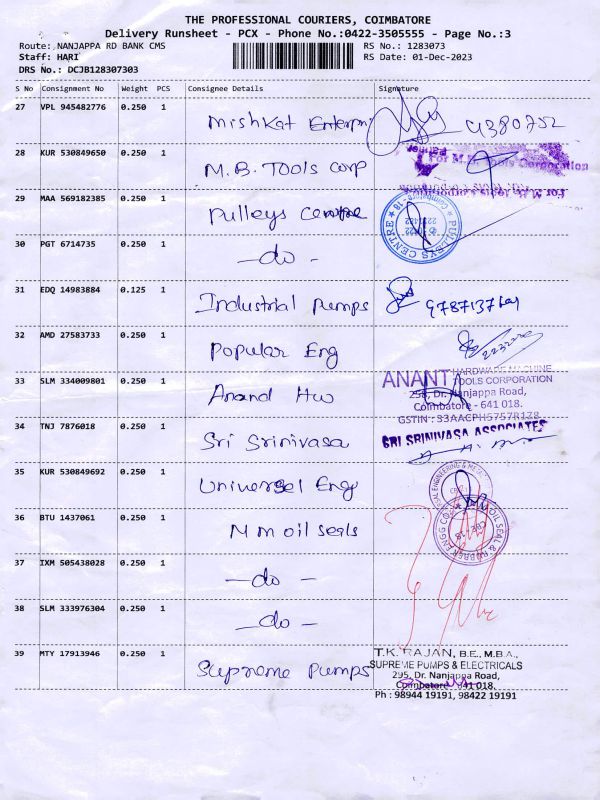 THE PROFESSIONAL COURIERS, COIMBATORE
Delivery Runsheet - PCX - Phone No.:0422-3505555 - Page No.:3
Route: NANJAPPA RD BANK CMS RS No.: 1283073
Staff: HARI RS Date: 01-Dec-2023
DRS No.: DCJB128307303
S No Consignment No Weight PCS Consignee Details Signature
27 VPL 945482776 0.250 1 Mishkat Enterpri
28 KUR 530849650 0.250 1 M.B. Tools Corp For M.B. Tools Corporation
Partner
29 MAA 569182385 0.250 1 Pulleys Centre PULLEYS CENTRE
30 PGT 6714735 0.250 1 -do-
31 EDQ 14983884 0.125 1 Industrial Pumps
32 AMD 27583733 0.250 1 Popular Eng
33 SLM 334009801 0.250 1 Anand Hw ANANT HARDWARE MACHINE
TOOLS CORPORATION
258, Dr. Nanjappa Road,
Coimbatore - 641 018.
34 TNJ 7876018 0.250 1 Sri Srinivasa SRI SRINIVASA ASSOCIATES
35 KUR 530849692 0.250 1 Universel Eng
36 BTU 1437061 0.250 1 M m oil seals OIL SEAL & RUBBER ENGG CO
37 IXM 505438028 0.250 1 -do-
38 SLM 333976304 0.250 1 -do-
39 MTY 17913946 0.250 1 Supreme Pumps T.K. RAJAN, B.E., M.B.A.,
SUPREME PUMPS & ELECTRICALS
295, Dr. Nanjappa Road,
Coimbatore 641 018.
Ph : 98944 19191, 98422 19191